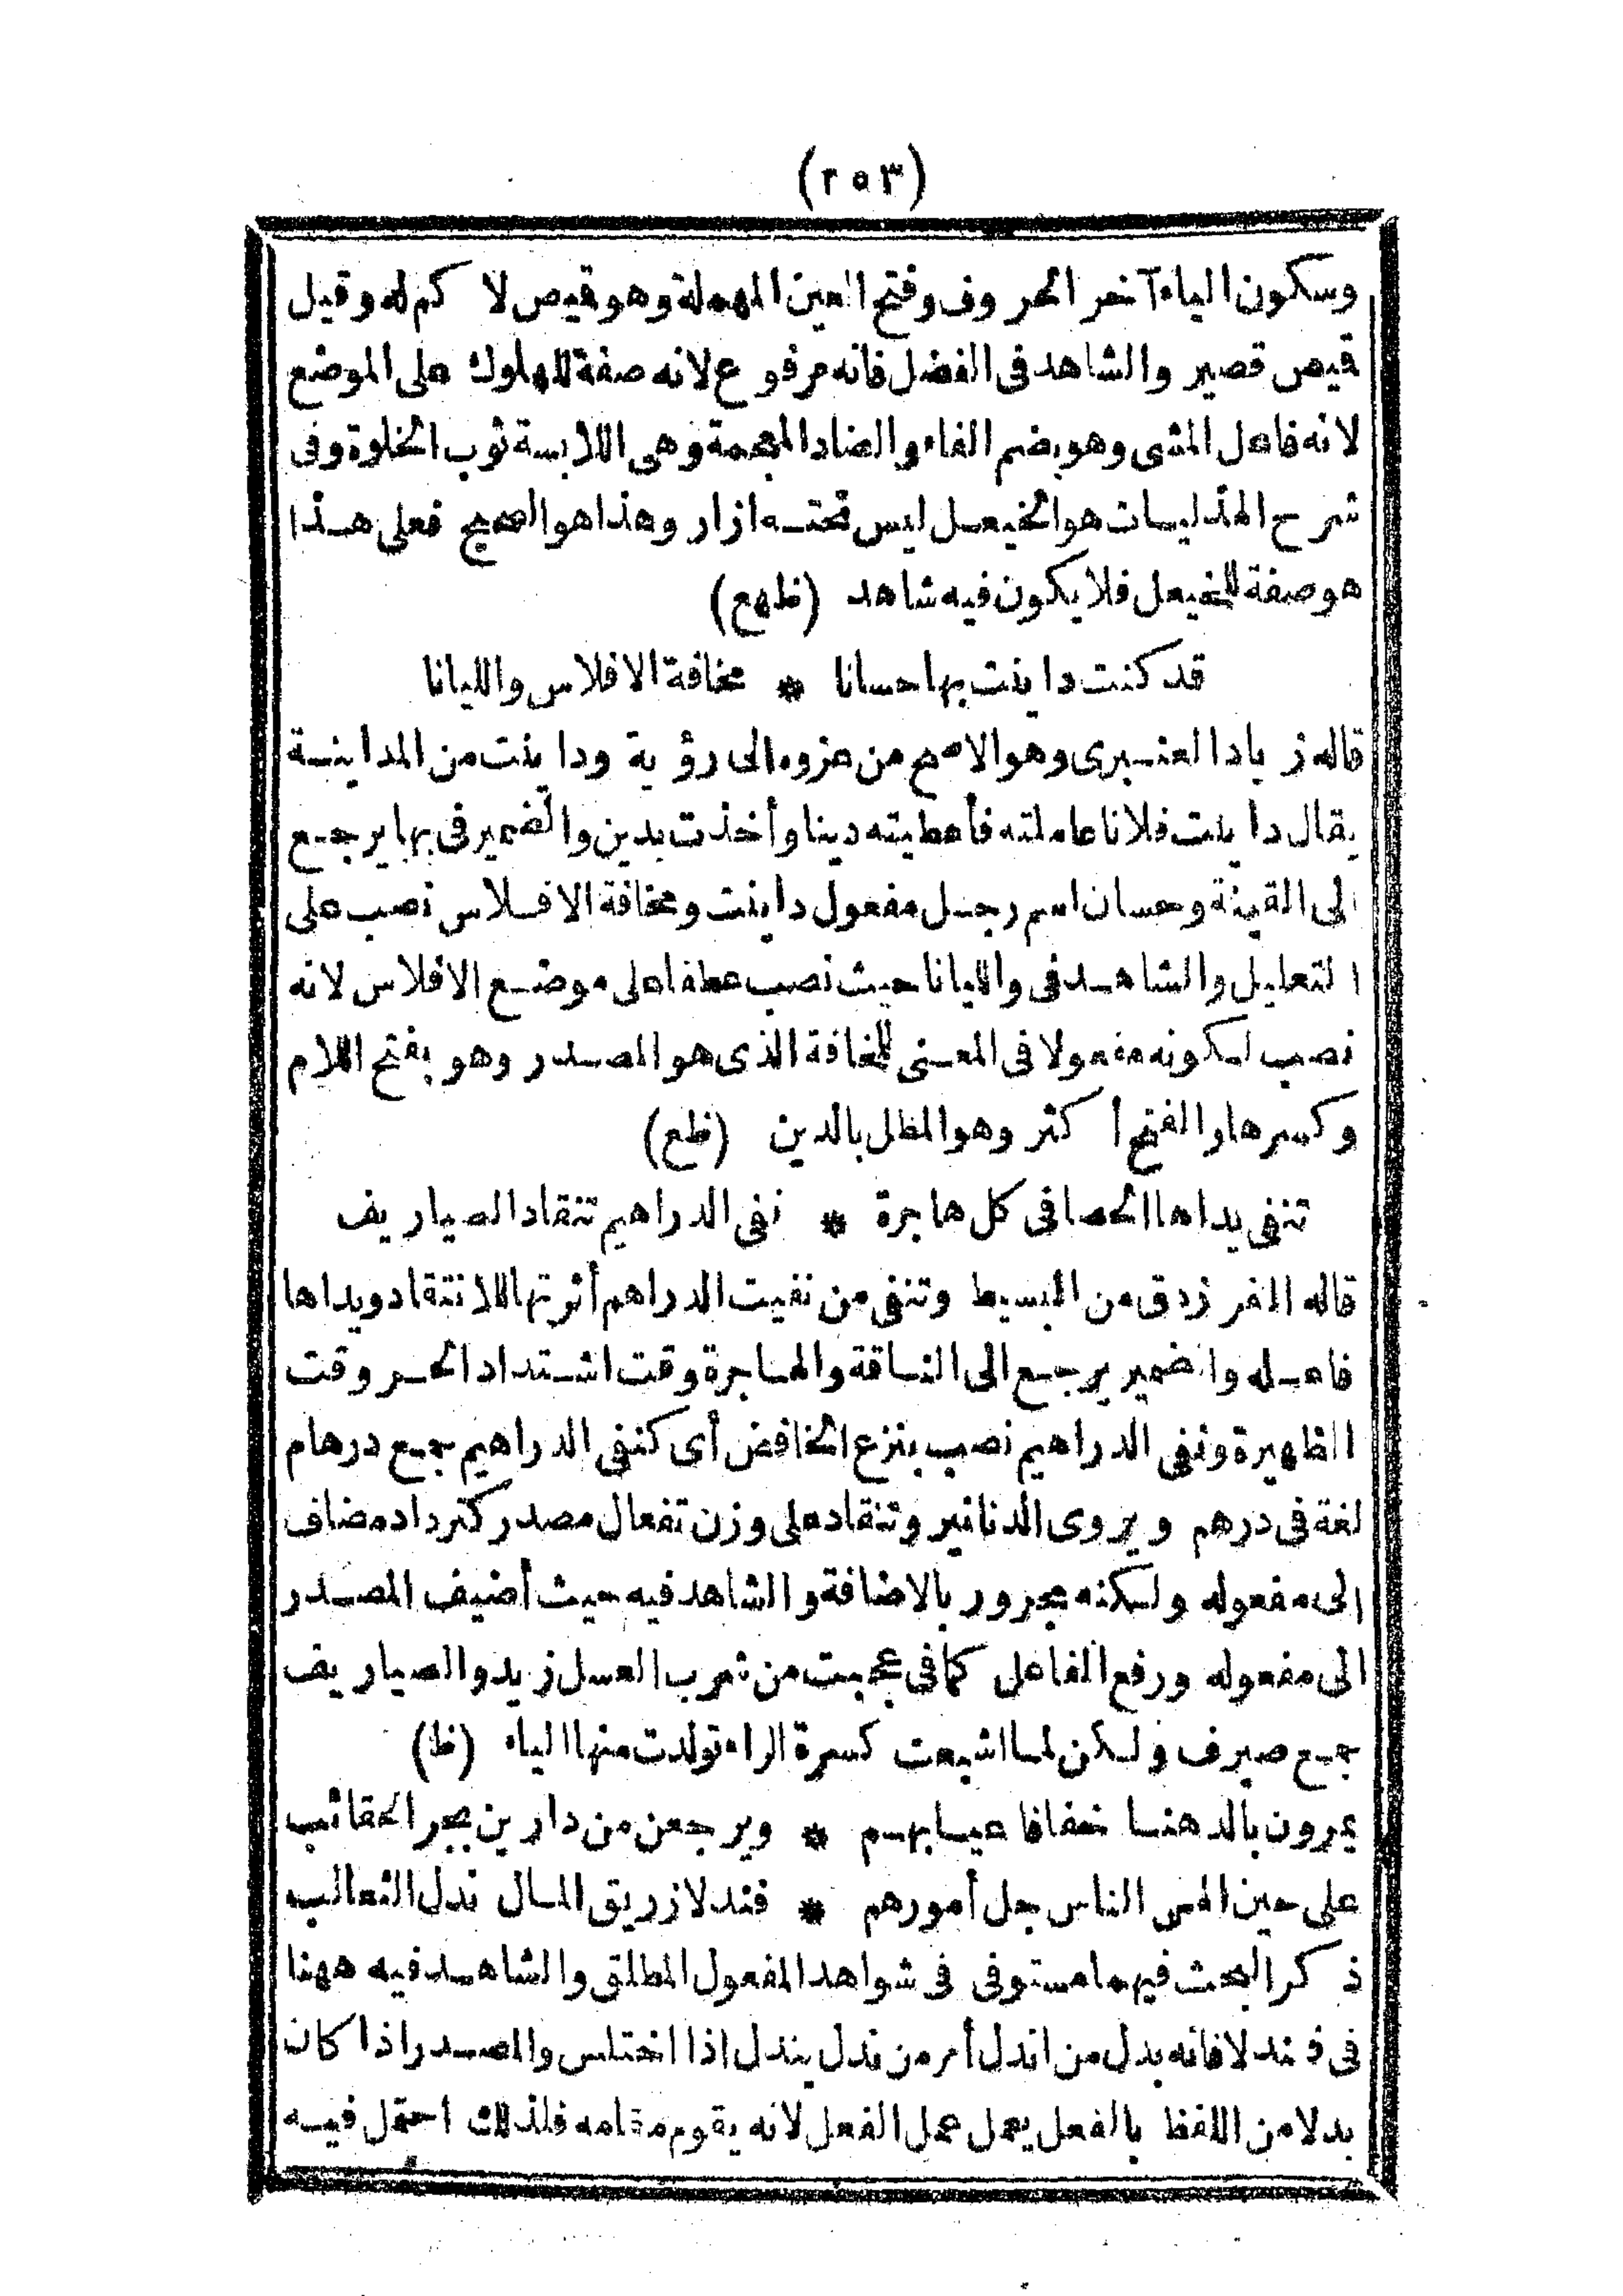 (٢٥٣)
وسكون الياء آخر الحروف وفتح العين المهملة وهو قميص لا كم له وقيل
قميص قصير والشاهد فى الفضل فانه مرفوع لانه صفة للهلوك على الموضع
لانه فاعل المشى وهو بضم الفاء والضاد المعجمة وهى اللابسة ثوب الخلوة وفى
شرح الهذليات هو الخيعل ليس تحته ازار وهذا هو الصحيح فعلى هذا
هو صفة للخيعل فلا يكون فيه شاهد (ظهع)
قد كنت داينت بها حسانا * مخافة الافلاس والليانا
قاله زيادا العنبرى وهو الاصح من عزوه الى رؤية وداينت من المداينة
يقال داينت فلانا عاملته فأعطيته دينا وأخذت بدين والضمير فى بها يرجع
الى القينة وحسان اسم رجل مفعول داينت ومخافة الافلاس نصب على
التعليل والشاهد فى والليانا حيث نصب عطفا على موضع الافلاس لانه
نصب لكونه مفعولا فى المعنى للمخافة الذى هو المصدر وهو بفتح اللام
وكسرها والفتح أكثر وهو المطل بالدين (ظع)
تنفى يداها الحصا فى كل هاجرة * نفى الدراهيم تنقاد الصياريف
قاله الفرزدق من البسيط وتنفى من نفيت الدراهم أثرتها للانتقاد ويداها
فاعله والضمير يرجع الى الناقة والهاجرة وقت اشتداد الحر وقت
الظهيرة ونفى الدراهيم نصب بنزع الخافض أى كنفى الدراهيم جمع درهام
لغة فى درهم ويروى الدنانير وتنقاد على وزن تفعال مصدر كترداد مضاف
الى مفعوله ولكنه مجرور بالاضافة والشاهد فيه حيث أضيف المصدر
الى مفعوله ورفع الفاعل كما فى عجبت من شرب العسل زيد والصياريف
جمع صيرف ولكن لما اشبعت كسرة الراء تولدت منها الياء (ظ)
يمرون بالدهنا خفافا عيابهم * ويرجعن من دارين بجر الحقائب
على حين الهى الناس جل أمورهم * فندلا زريق المال ندل الثعالب
ذكر البحث فيهما مستوفى فى شواهد المفعول المطلق والشاهد فيه ههنا
فى فندلا فانه بدل من اندل أمر من ندل يندل اذا اختلس والمصدر اذا كان
بدلا من اللفظ بالفعل يعمل عمل الفعل لانه يقوم مقامه فلذلك احتمل فيه